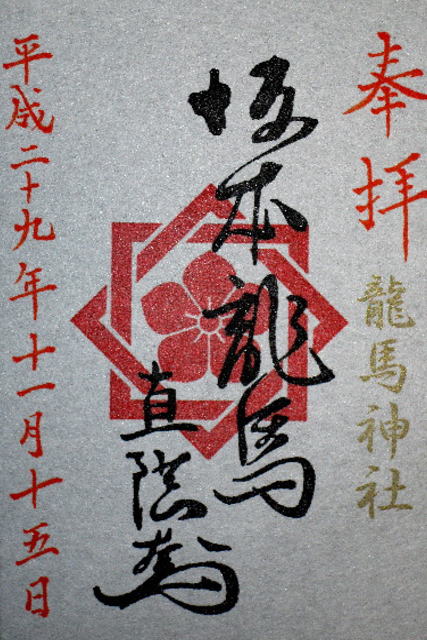 奉拝
龍馬神社
坂本龍馬
直陰
平成二十九年十一月十五日